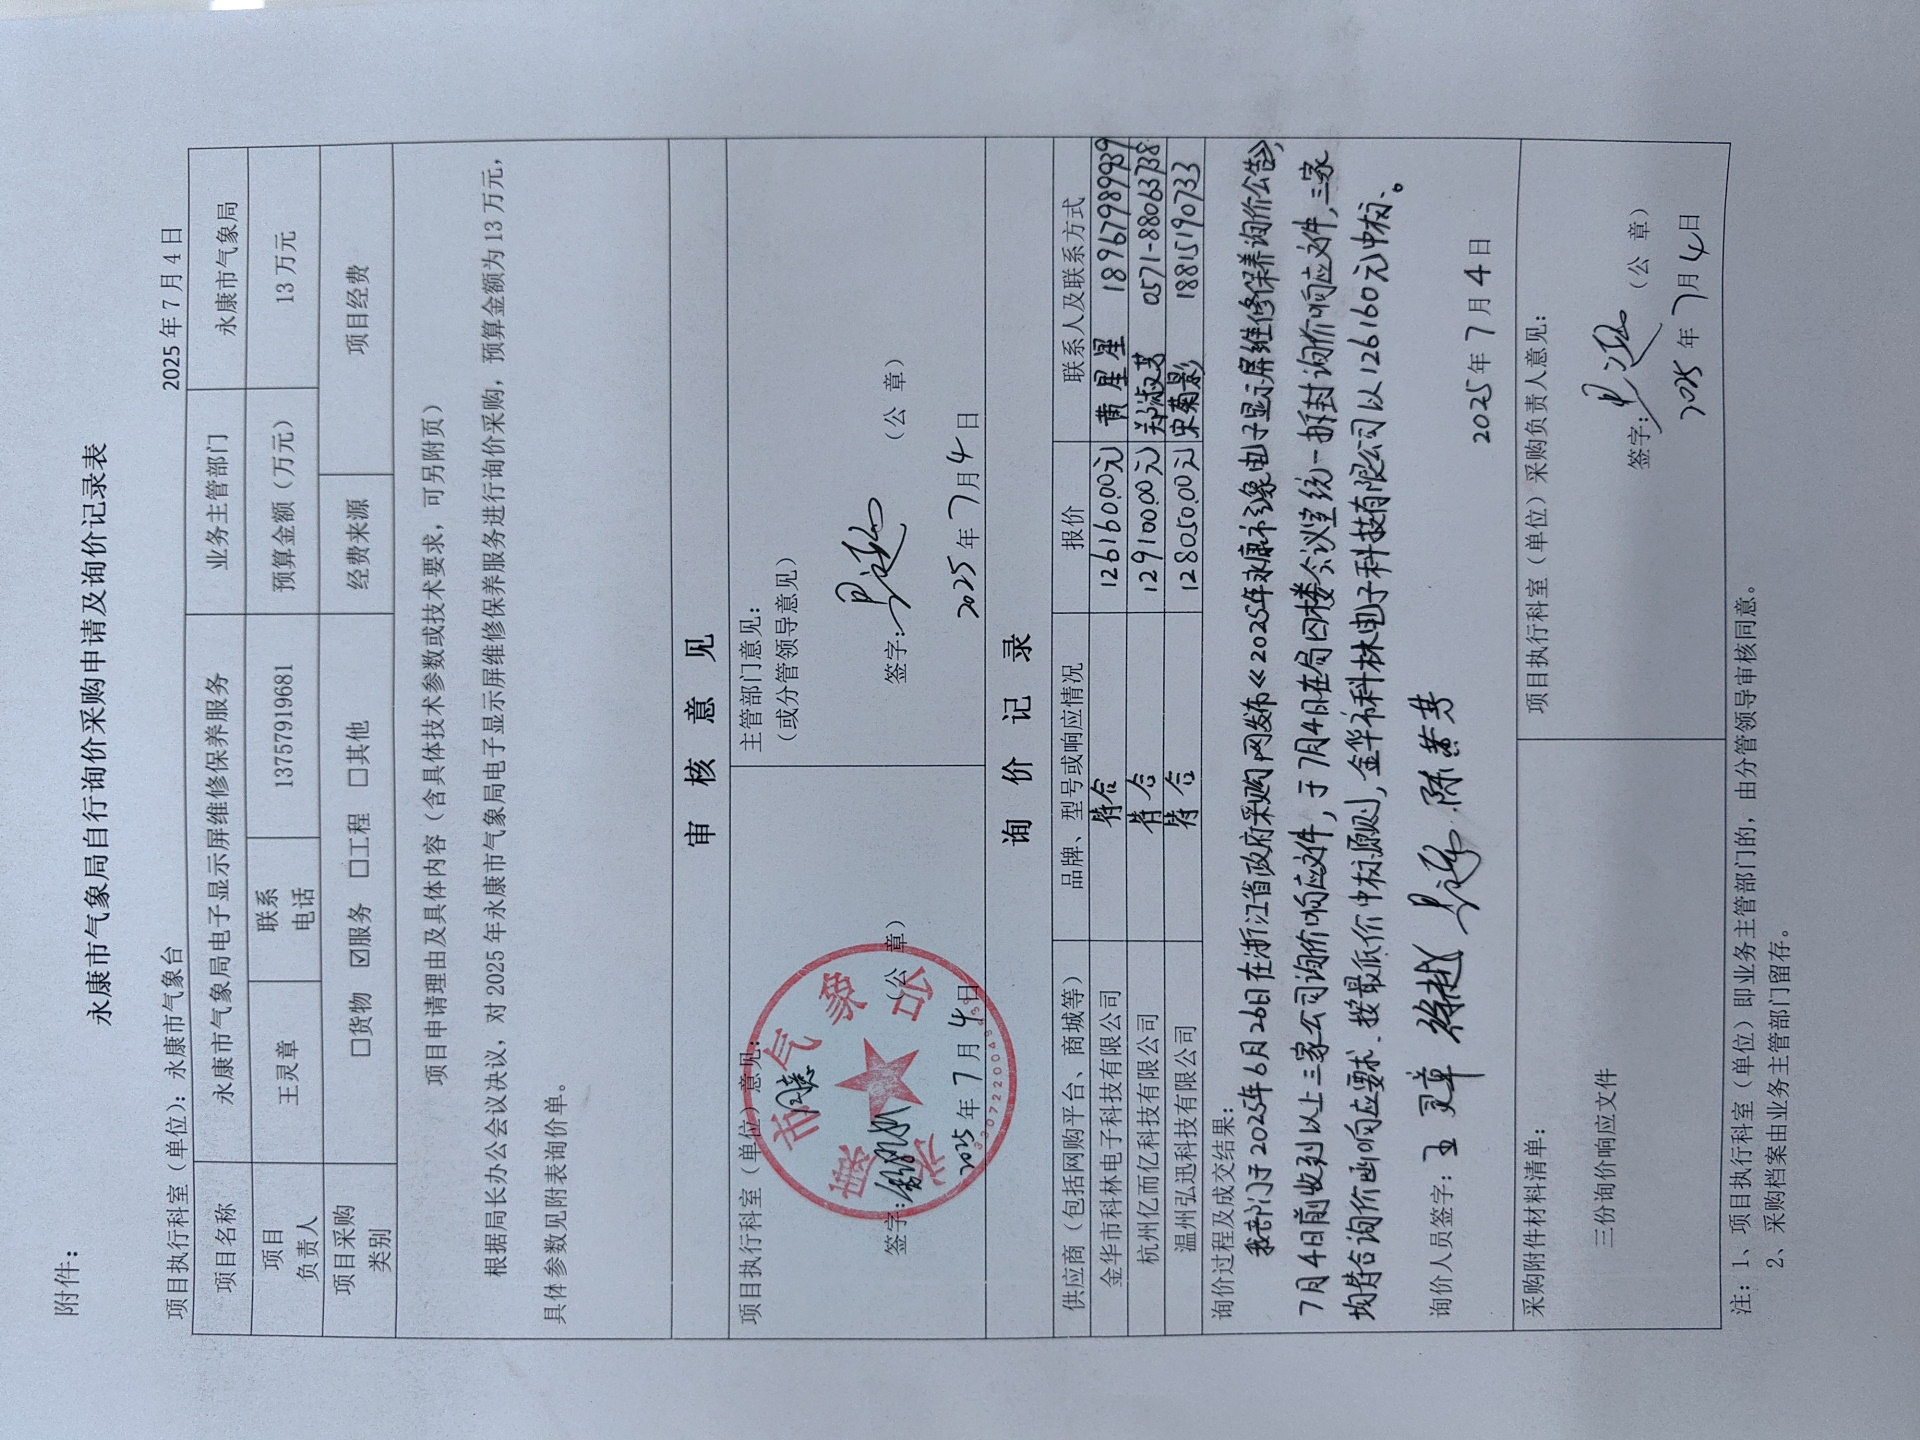 附件：
永康市气象局自行询价采购申请及询价记录表
项目执行科室（单位）：永康市气象台 2025 年 7 月 4 日
项目名称 永康市气象局电子显示屏维修保养服务 业务主管部门 永康市气象局
项目负责人 王灵章 联系电话 13757919681 预算金额（万元） 13 万元
项目采购类别 □货物 ☑服务 □工程 □其他 经费来源 项目经费
项目申请理由及具体内容（含具体技术参数或技术要求，可另附页）
根据局长办公会议决议，对 2025 年永康市气象局电子显示屏维修保养服务进行询价采购，预算金额为 13 万元，
具体参数见附表询价单。
审 核 意 见
项目执行科室（单位）意见：
同意
签字： （公 章）
2025 年 7 月 4 日
永康市气象台
主管部门意见：
（或分管领导意见）
签字： （公 章）
2025 年 7 月 4 日
询 价 记 录
供应商（包括网购平台、商城等） 品牌、型号或响应情况 报价 联系人及联系方式
金华市科林电子科技有限公司 符合 126160.00元 黄星星 18967989939
杭州亿而亿科技有限公司 符合 129100.00元 郑淑英 0571-88063738
温州弘迅科技有限公司 符合 128050.00元 宋菊影 18815190733
询价过程及成交结果：
我部门于2025年6月26日在浙江省政府采购网发布《2025年永康市气象电子显示屏维修保养询价公告》，
7月4日前收到以上三家公司询价响应文件，于7月4日在局四楼会议室统一拆封询价响应文件，三家
均符合询价函响应要求。按最低价中标原则，金华市科林电子科技有限公司以126160元中标。
询价人员签字：王灵章 徐越 陈芳
2025 年 7 月 4 日
采购附件材料清单：
三份询价响应文件
项目执行科室（单位）采购负责人意见：
签字： （公 章）
2025 年 7 月 4 日
注：1、项目执行科室（单位）即业务主管部门的，由分管领导审核同意。
2、采购档案由业务主管部门留存。